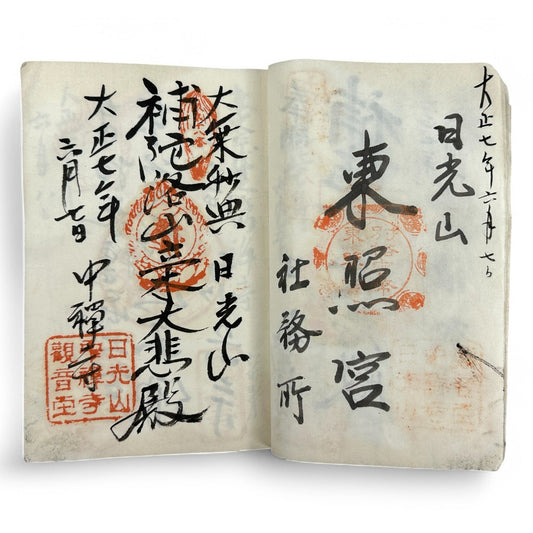 大正七年六月七日
日光山
東照宮
社務所
大乗妙典 日光山
補陀落山 大悲殿
大正七年
六月七日
中禅寺
日光山
中禅寺
観音堂